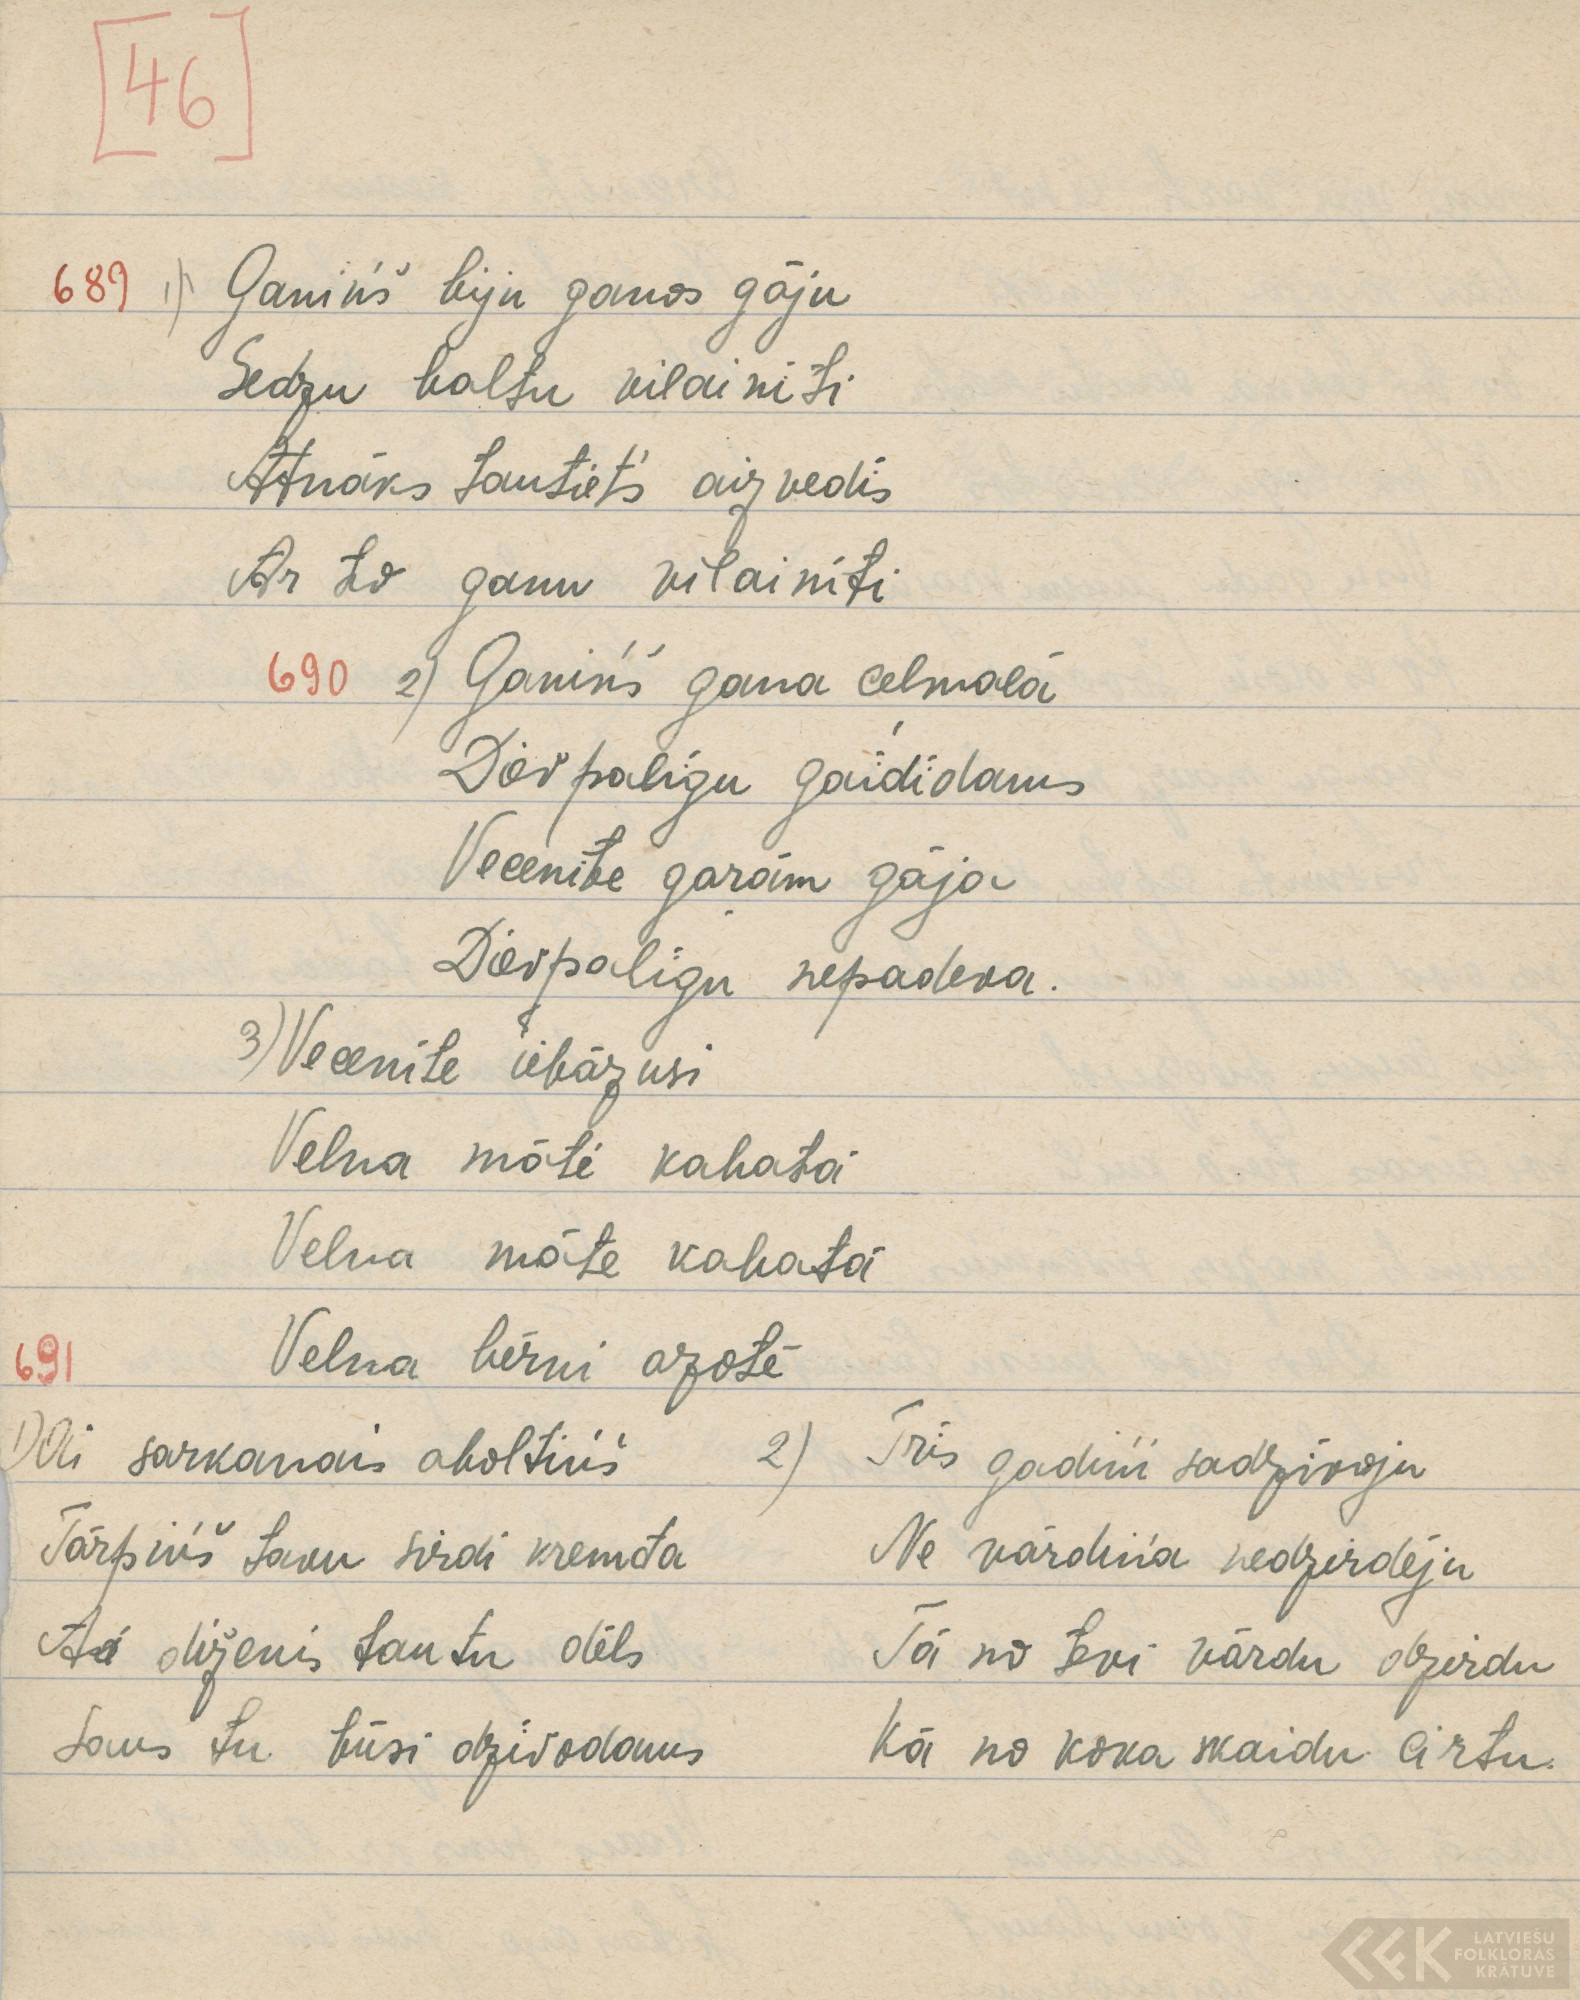 [46]
689 1) Ganiņš biju ganos gāju
Sedzu baltu vilainīti
Atnāks tautiet's aizvedīs
Ar to ganu vilainīti
690 2) Ganiņš gana celmalā
Dievpalīgu gaidīdams
Vecenīte garām gāja
Dievpalīgu nepadeva.
3) Vecenīte iebāzusi
Velna mātē kabatā
Velna māte kabatā
Velna bērni azotē
691
1) Ai sarkanais āboltiņš
Tārpiņš tavu sirdi kremta
Ai diženis tautu dēls
Savs tu būsi dzīvodams
2) Trīs gadiņi sadzīvoju
Ne vārdiņa nedzirdēju
Tā no tevi vārdu dzirdu
Kā no koka skaidu cirtu.
LATVIEŠU
FOLKLORAS
KRĀTUVE